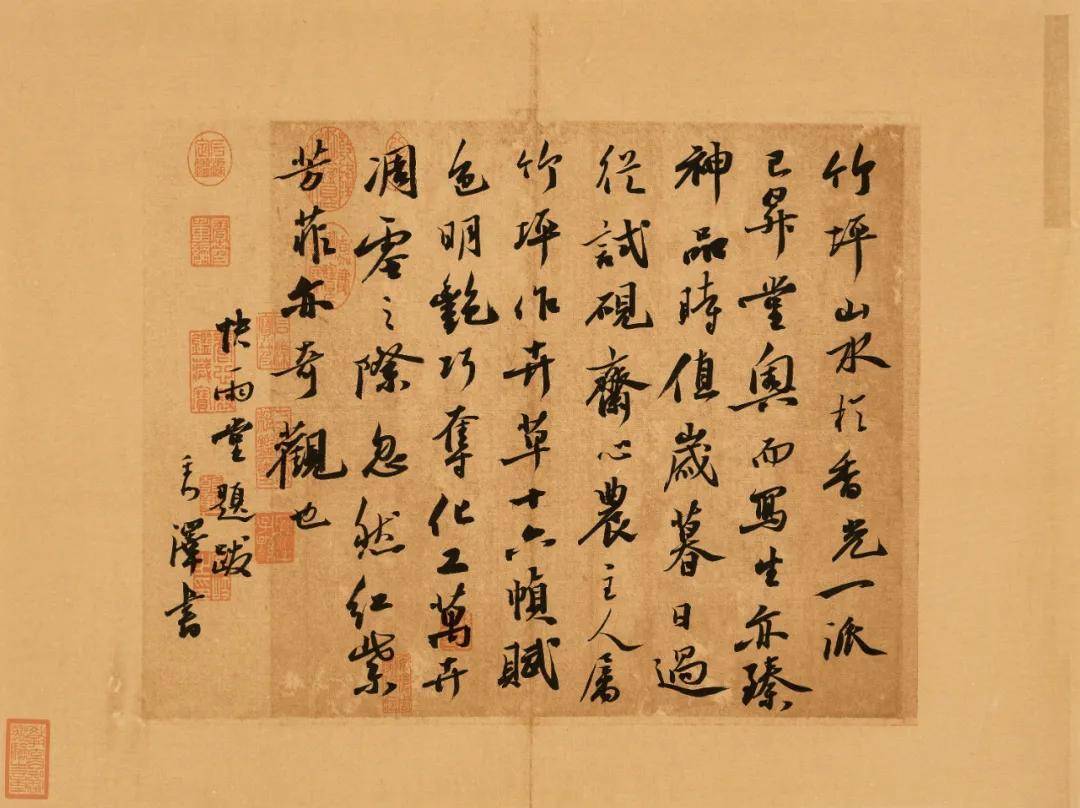 竹坪山水於香光一派
已昇堂奧而寫生亦臻
神品時值歲暮日過
從試硯齋心農主人屬
竹坪作卉草十六幀賦
色明艷巧奪化工萬卉
凋零之際忽然紅紫
芳菲亦奇觀也
快雨堂題跋
秀澤書